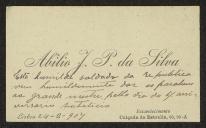 Abilio J. P. da Silva
Este humilde soldado da republica
vem humildemente dar os parabens
ao grande mestre, pelo dia do 4º anni
versario natalicio
Lisboa 24-2-907
Encarnamento
Calçada da Estrella,